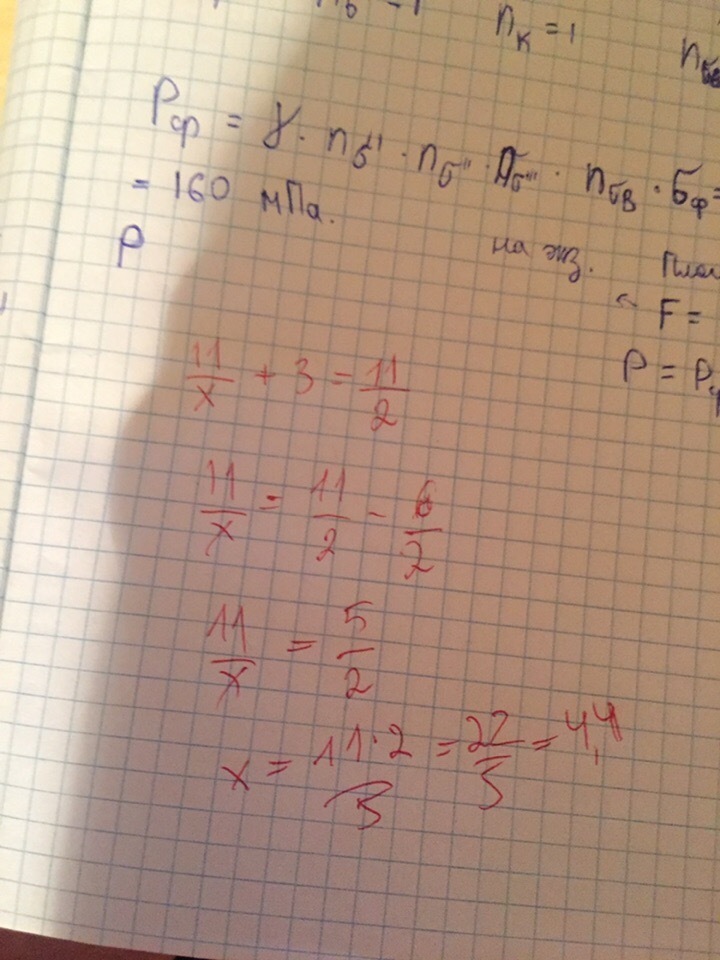 n_K = 1
P_ср = γ · n_б'' · n_б'' · n_б''' · n_бв · б_ф =
= 160 мПа.
P
на экз.
F =
P = P
11/x + 3 = 11/2
11/x = 11/2 - 6/2
11/x = 5/2
x = 11·2/5 = 22/5 = 4,4